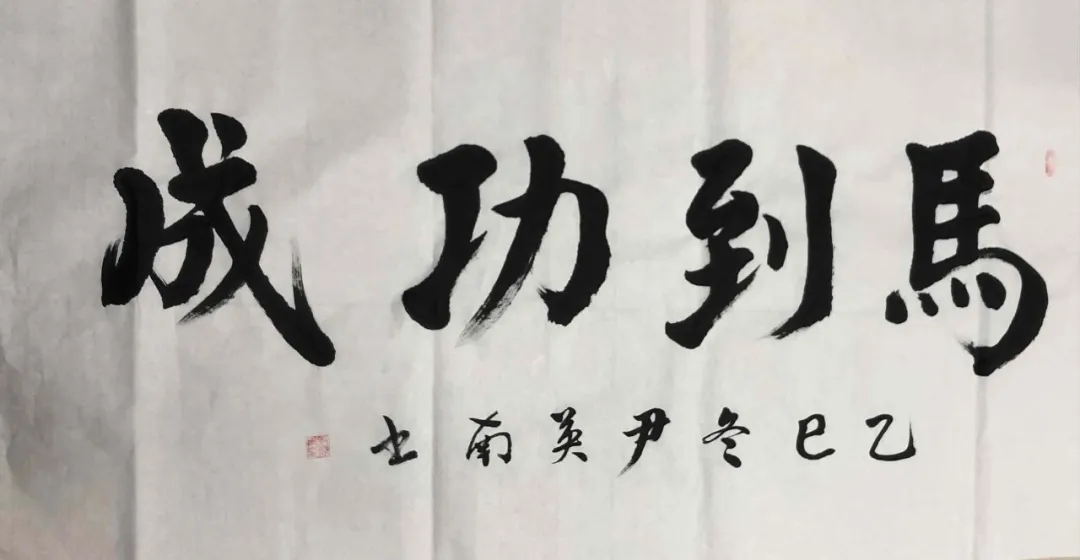 馬到功成
乙巳冬尹英南书